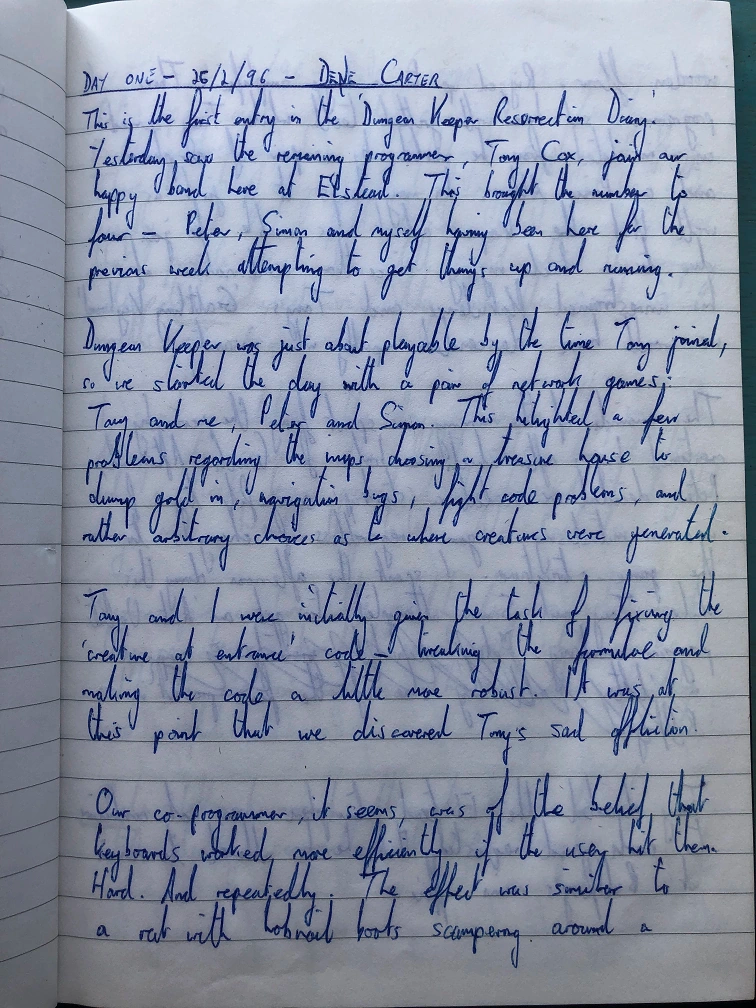 DAY ONE – 26/2/96 – DENE CARTER
This is the first entry in the 'Dungeon Keeper Resurrection Diary'.
Yesterday saw the remaining programmer, Tony Cox, join our
happy band here at Elstead. This brought the number to
four – Peter, Simon and myself having been here for the
previous week attempting to get things up and running.
Dungeon Keeper was just about playable by the time Tony joined,
so we started the day with a pair of network games;
Tony and me, Peter and Simon. This hilighted a few
problems regarding the imps choosing a treasure house to
dump gold in, navigation bugs, fight code problems, and
rather arbitrary choices as to where creatures were generated.
Tony and I were initially given the task of fixing the
'creature at entrance' code – tweaking the formulae and
making the code a little more robust. It was at
this point that we discovered Tony's sad affliction.
Our co-programmer, it seems, was of the belief that
keyboards worked more efficiently if the user hit them.
Hard. And repeatedly. The effect was similar to
a rat with hobnail boots scampering around a